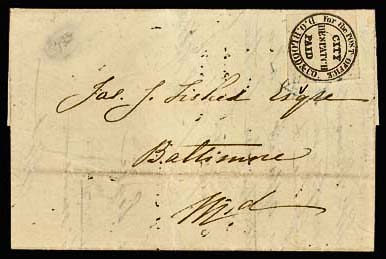 For the POST OFFICE
CITY
DESPATCH
PAID
D.O. Blood & Co's
Jas. J. Fisher Esqre
Baltimore
Md